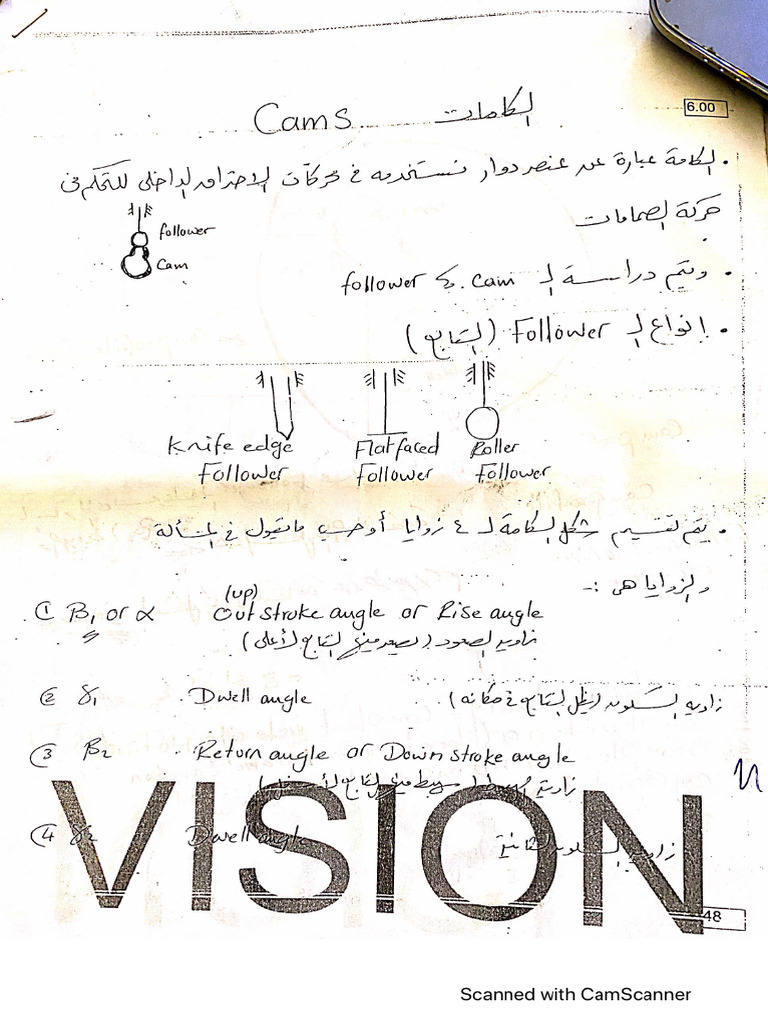 Cams الكامات
6.00
• الكامة عبارة عن عنصر دوار نستخدمه في محركات الاحتراق الداخلى للتحكم فى
حركة الصمامات
follower
Cam
• ويتم دراسة الـ cam & follower
• انواع الـ Follower (التابع)
Knife edge Follower
Flat faced Follower
Roller Follower
• يتم تقسيم شكل الكامة لـ ٤ زوايا أو حسب ما يقول في المسألة
والزوايا هى :-
① β₁ or α (up) Out stroke angle or Rise angle
زاوية الصعود (يصعد فيها التابع لأعلى)
② γ₁ Dwell angle زاوية السكون (يظل التابع في مكانه)
③ β₂ Return angle or Down stroke angle
زاوية الهبوط يهبط فيها التابع
④ γ₂ Dwell angle زاوية السكون الثانية
VISION
48
Scanned with CamScanner